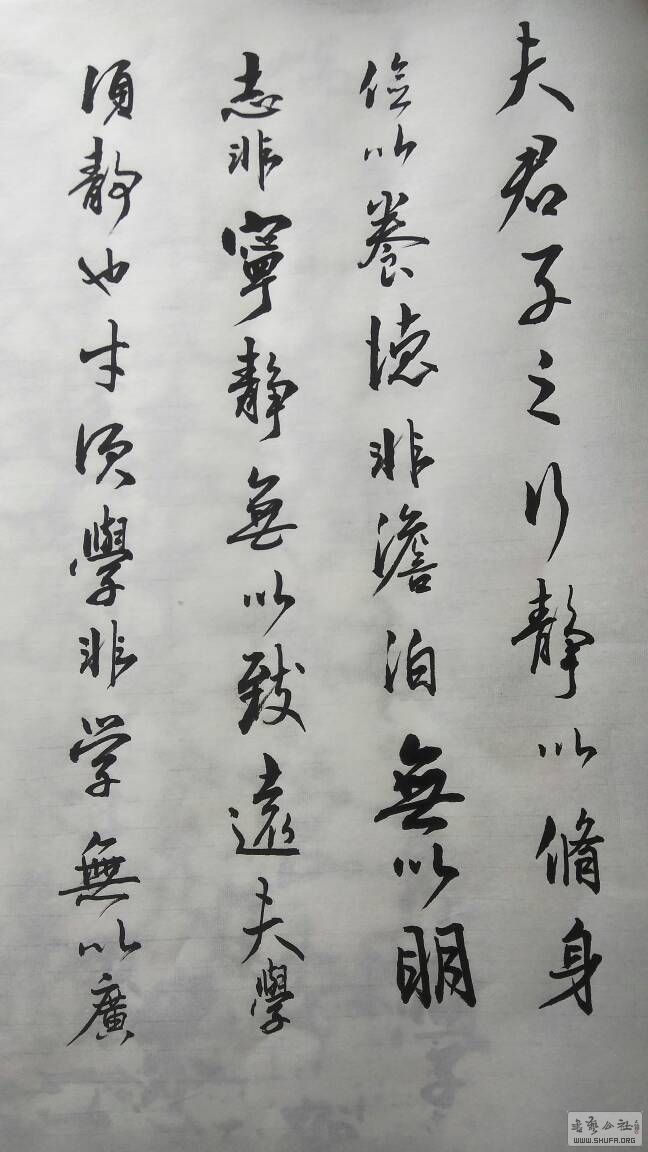 夫君子之行靜以脩身
儉以養德非澹泊無以明
志非寧靜無以致遠夫學
須靜也才須學非学無以廣
书艺公社
WWW.SHUFA.ORG